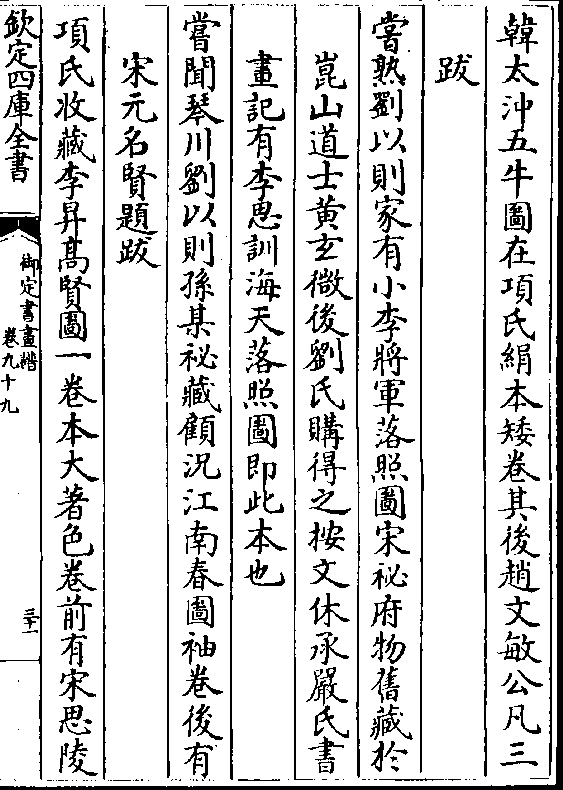 韓太沖五牛圖在項氏絹本矮卷其後趙文敏公凡三
跋
嘗熟劉以則家有小李將軍落照圖宋祕府物舊藏於
崑山道士黃玄微後劉氏購得之按文休承嚴氏書
畫記有李思訓海天落照圖即此本也
嘗聞琴川劉以則孫某祕藏顧況江南春圖袖卷後有
宋元名賢題跋
項氏收藏李昇高賢圖一卷本大著色卷前有宋思陵
欽定四庫全書
御定書畫譜
卷九十九
三十二